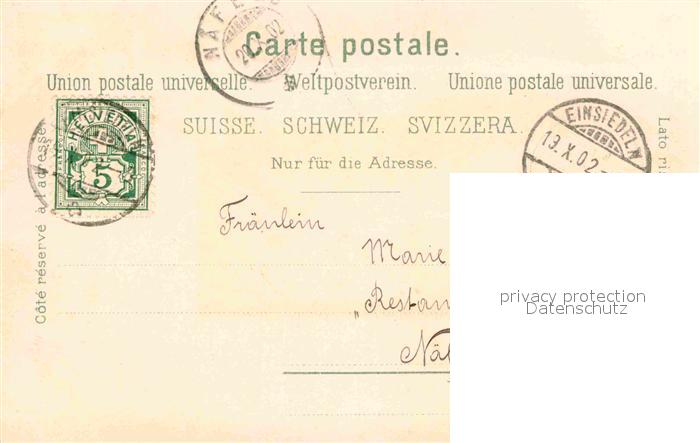 NÄFELS
20.X.02
Carte postale.
Union postale universelle. Weltpostverein. Unione postale universale.
HELVETIA
5
SUISSE. SCHWEIZ. SVIZZERA.
EINSIEDELN
19.X.02
Nur für die Adresse.
Côté réservé à l'adresse.
Lato ri
Fräulein
Marie
"Restau
Näf
privacy protection
Datenschutz